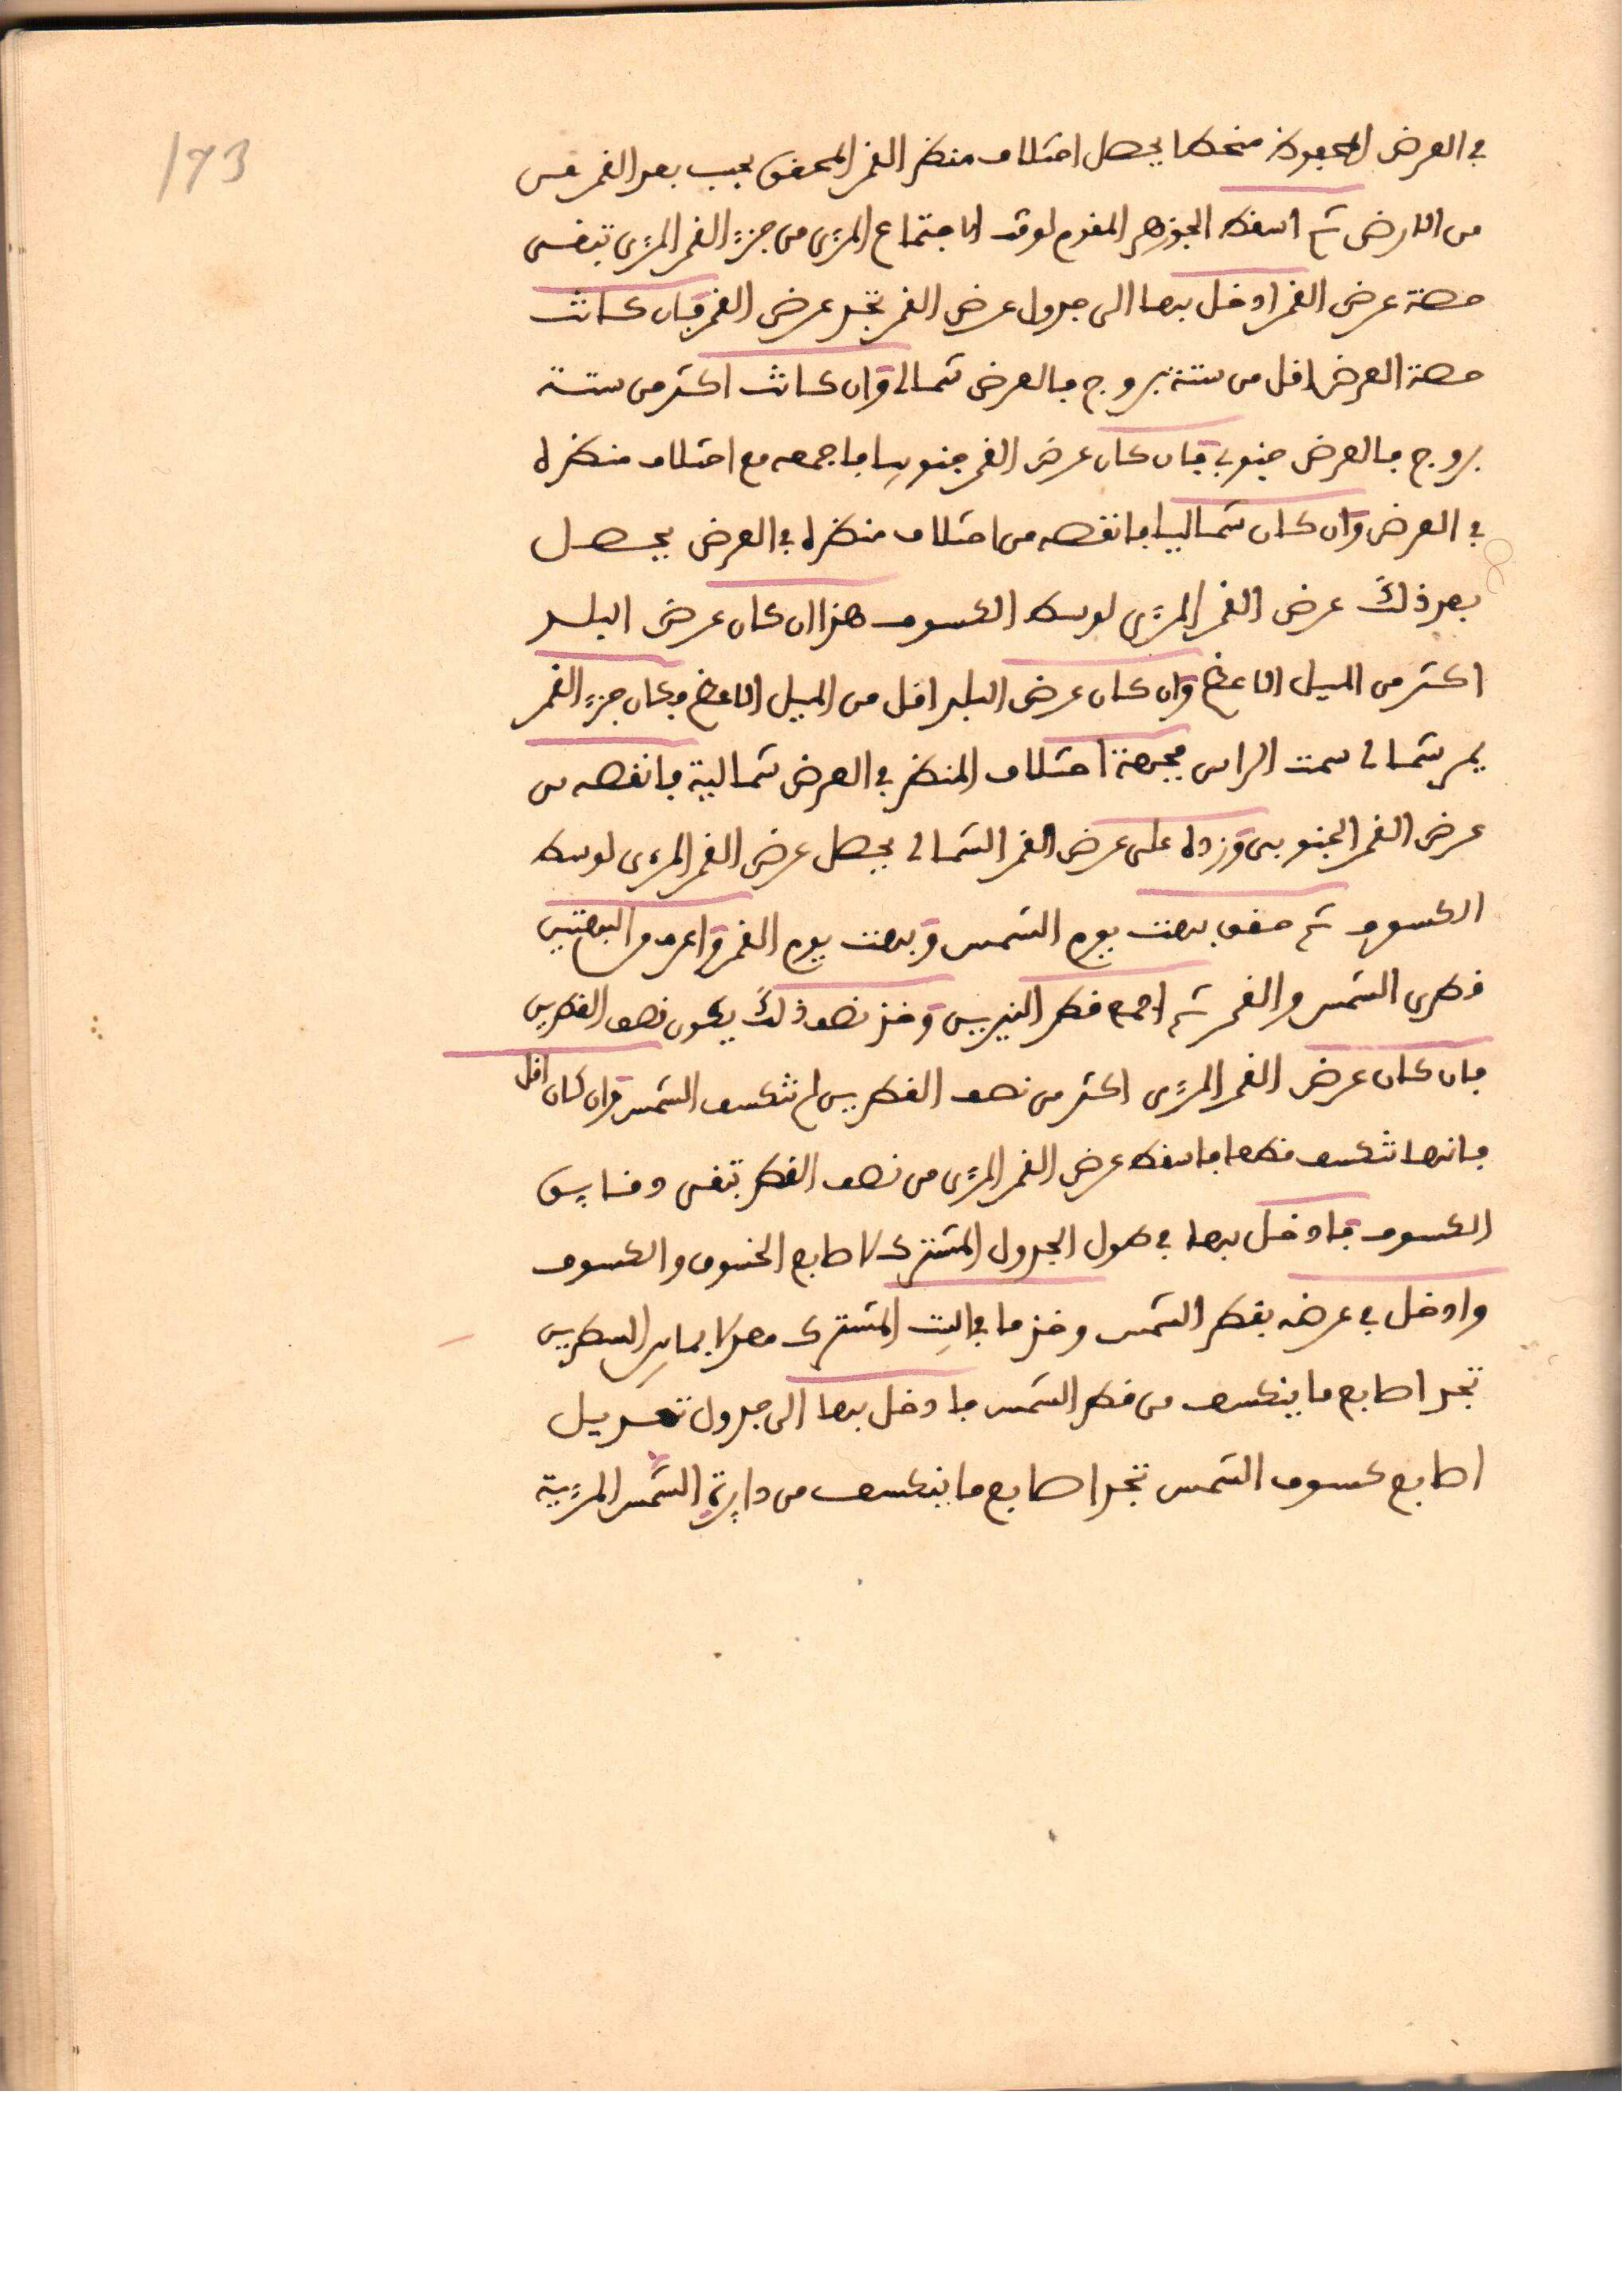 173
في العرض المحفوظ منحطا يحصل اختلاف منظر القمر المحقق بحسب بعد القمر
من الارض ثم اسقط الجوزهر المقوم لوقت الاجتماع المرئ من جزء القمر المرئ تبقى
حصة عرض القمر ادخل بها الى جدول عرض القمر تجد عرض القمر فان كانت
حصة العرض اقل من ستة بروج فالعرض شمالي وان كانت اكثر من ستة
بروج فالعرض جنوبي فان كان عرض القمر جنوبيا فاجمعه مع اختلاف منظره
في العرض وان كان شماليا فانقصه من اختلاف منظره في العرض يحصل
بعد ذلك عرض القمر المرئ لوسط الكسوف هذا ان كان عرض البلد
اكثر من الميل الاعظم وان كان عرض البلد اقل من الميل الاعظم وكان جزء القمر
يمر شمالي سمت الراس فجهة اختلاف المنظر في العرض شمالية فانقصه من
عرض القمر الجنوبي وزده على عرض القمر الشمالي يحصل عرض القمر المرءى لوسط
الكسوف ثم حقق بهت يوم الشمس وبهت يوم القمر واعرف من البهتين
قطرى الشمس والقمر ثم اجمع قطر النيرين وخذ نصف ذلك يكون نصف القطرين
فان كان عرض القمر المرئ اكثر من نصف القطرين لم تنكسف الشمس وان كان اقل
فانها تنكسف فاسقط عرض القمر المرئ من نصف القطر تبقى دقايق
الكسوف فادخل بها في طول الجدول المشترك لاصابع الخسوف والكسوف
وادخل في عرضه بقطر الشمس وخذ ما في البيت المشترك معدلا بما بين السطرين
تجد اصابع ما ينكسف من قطر الشمس فادخل بها الى جدول تعديل
اصابع كسوف الشمس تجد اصابع ما ينكسف من دايرة الشمس المرئية